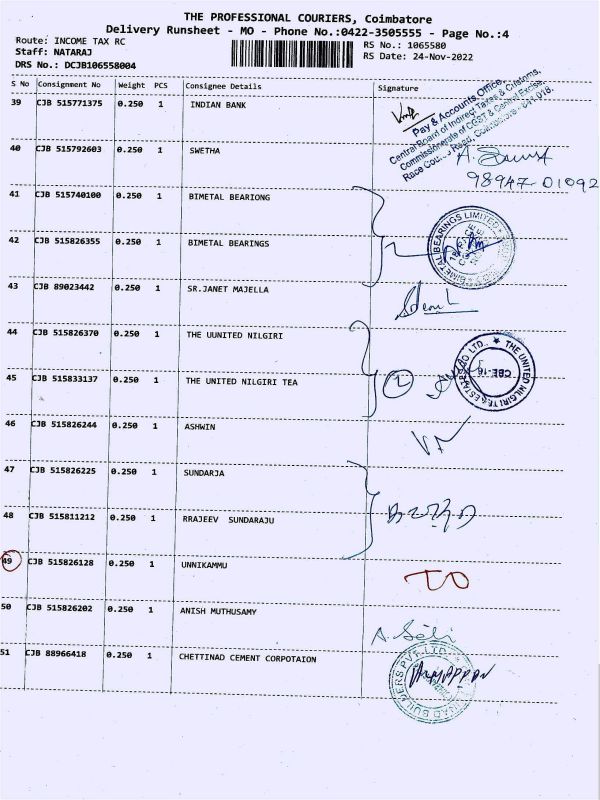 THE PROFESSIONAL COURIERS, Coimbatore
Delivery Runsheet - MO - Phone No.:0422-3505555 - Page No.:4
Route: INCOME TAX RC
RS No.: 1065580
Staff: NATARAJ
RS Date: 24-Nov-2022
DRS No.: DCJB106558004
S No Consignment No Weight PCS Consignee Details Signature
39 CJB 515771375 0.250 1 INDIAN BANK
Pay & Accounts Office,
Central Board of Indirect Taxes & Customs,
Commissionerate of CGST & Central Excise,
Race Course Road, Coimbatore - 641 018.
40 CJB 515792603 0.250 1 SWETHA
98947-01092
41 CJB 515740100 0.250 1 BIMETAL BEARIONG
42 CJB 515826355 0.250 1 BIMETAL BEARINGS
BIMETAL BEARINGS LIMITED
43 CJB 89023442 0.250 1 SR.JANET MAJELLA
44 CJB 515826370 0.250 1 THE UUNITED NILGIRI
45 CJB 515833137 0.250 1 THE UNITED NILGIRI TEA
2
THE UNITED NILGIRI TEA ESTATES CO LTD.,
CBE-18
46 CJB 515826244 0.250 1 ASHWIN
47 CJB 515826225 0.250 1 SUNDARJA
48 CJB 515811212 0.250 1 RRAJEEV SUNDARAJU
49 CJB 515826128 0.250 1 UNNIKAMMU
TO
50 CJB 515826202 0.250 1 ANISH MUTHUSAMY
51 CJB 88966418 0.250 1 CHETTINAD CEMENT CORPOTAION
BUILDERS PVT. LTD.